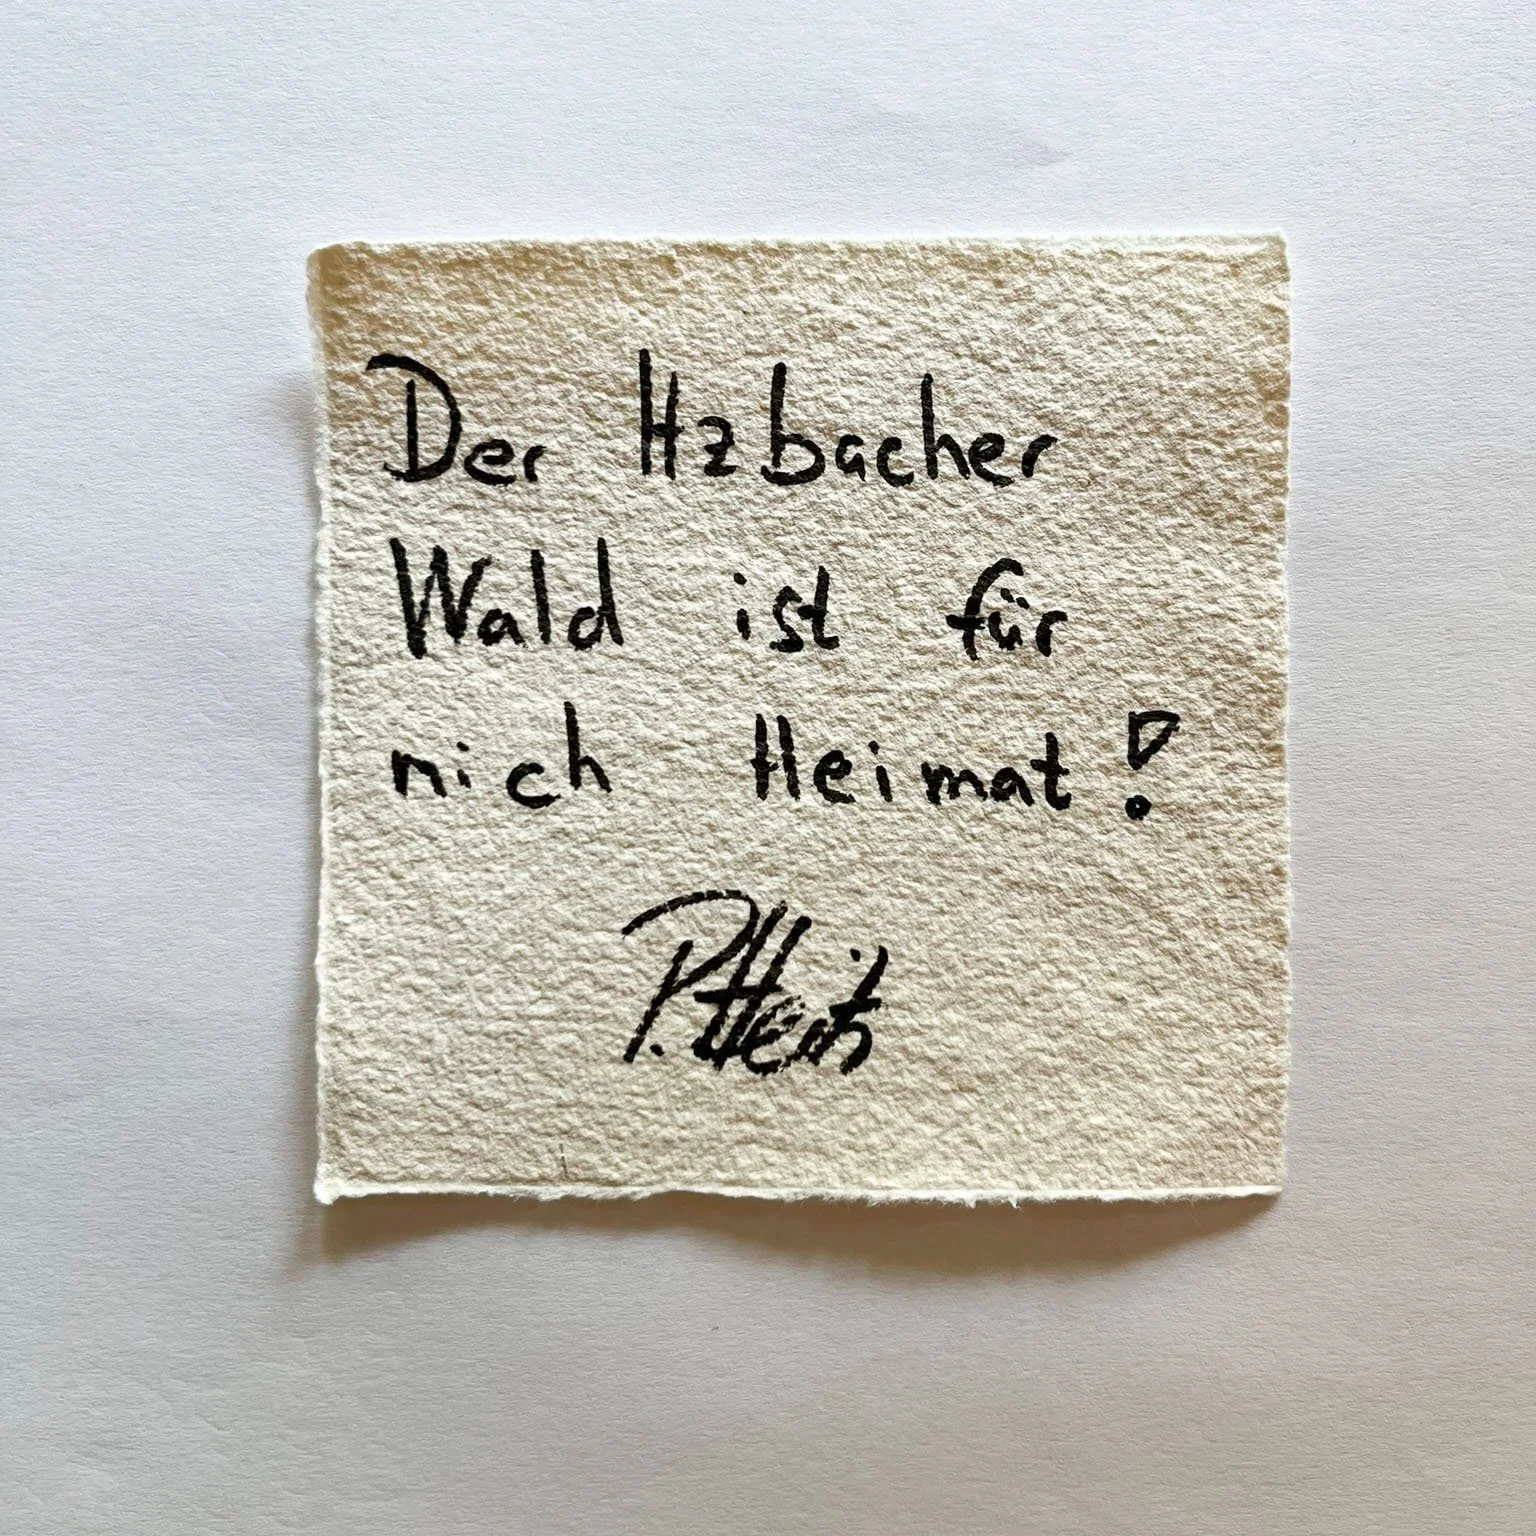 Der Hzbacher
Wald ist für
mich Heimat!